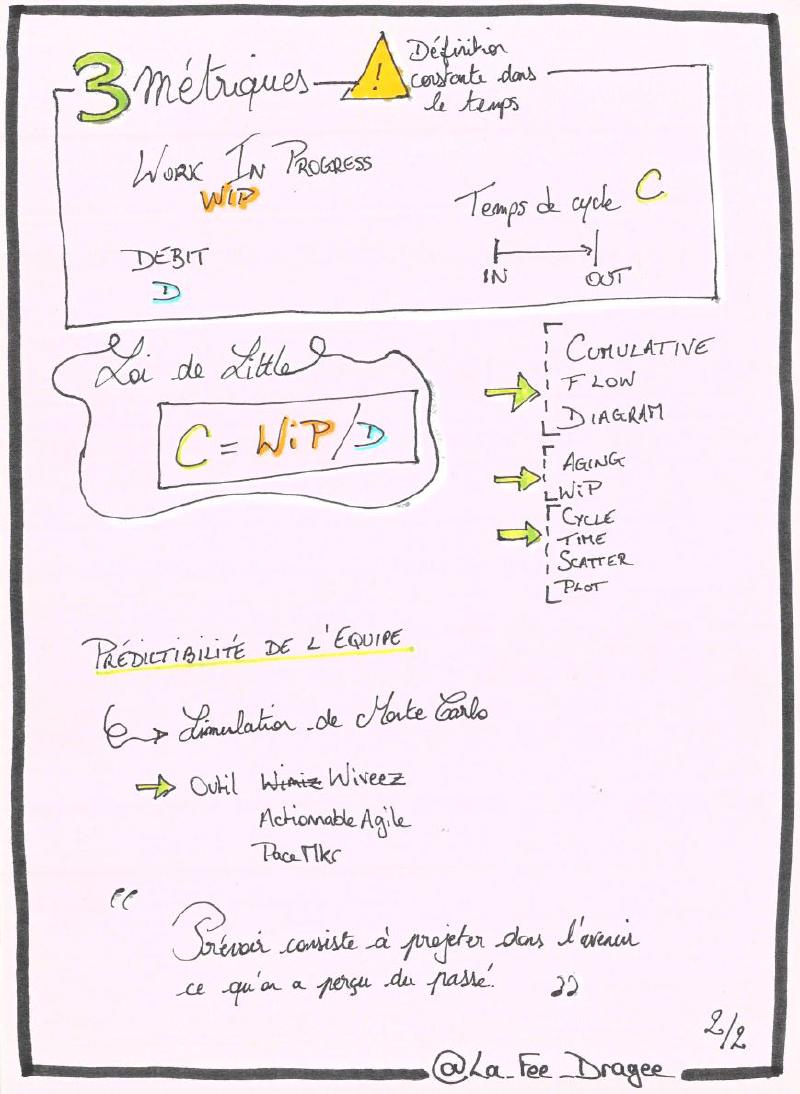 3 métriques
!
Définition
constante dans
le temps
WORK IN PROGRESS
WIP
Temps de cycle C
IN OUT
DÉBIT
D
Loi de Little
C = WiP/D
CUMULATIVE
FLOW
DIAGRAM
AGING
WiP
CYCLE
TIME
SCATTER
PLOT
PRÉDICTIBILITÉ DE L'EQUIPE
Simulation de Monte Carlo
Outil Wimiz Wiveez
Actionnable Agile
PaceMkr
“
Prévoir consiste à projeter dans l'avenir
ce qu'on a perçu du passé.
”
2/2
@La_Fee_Dragee